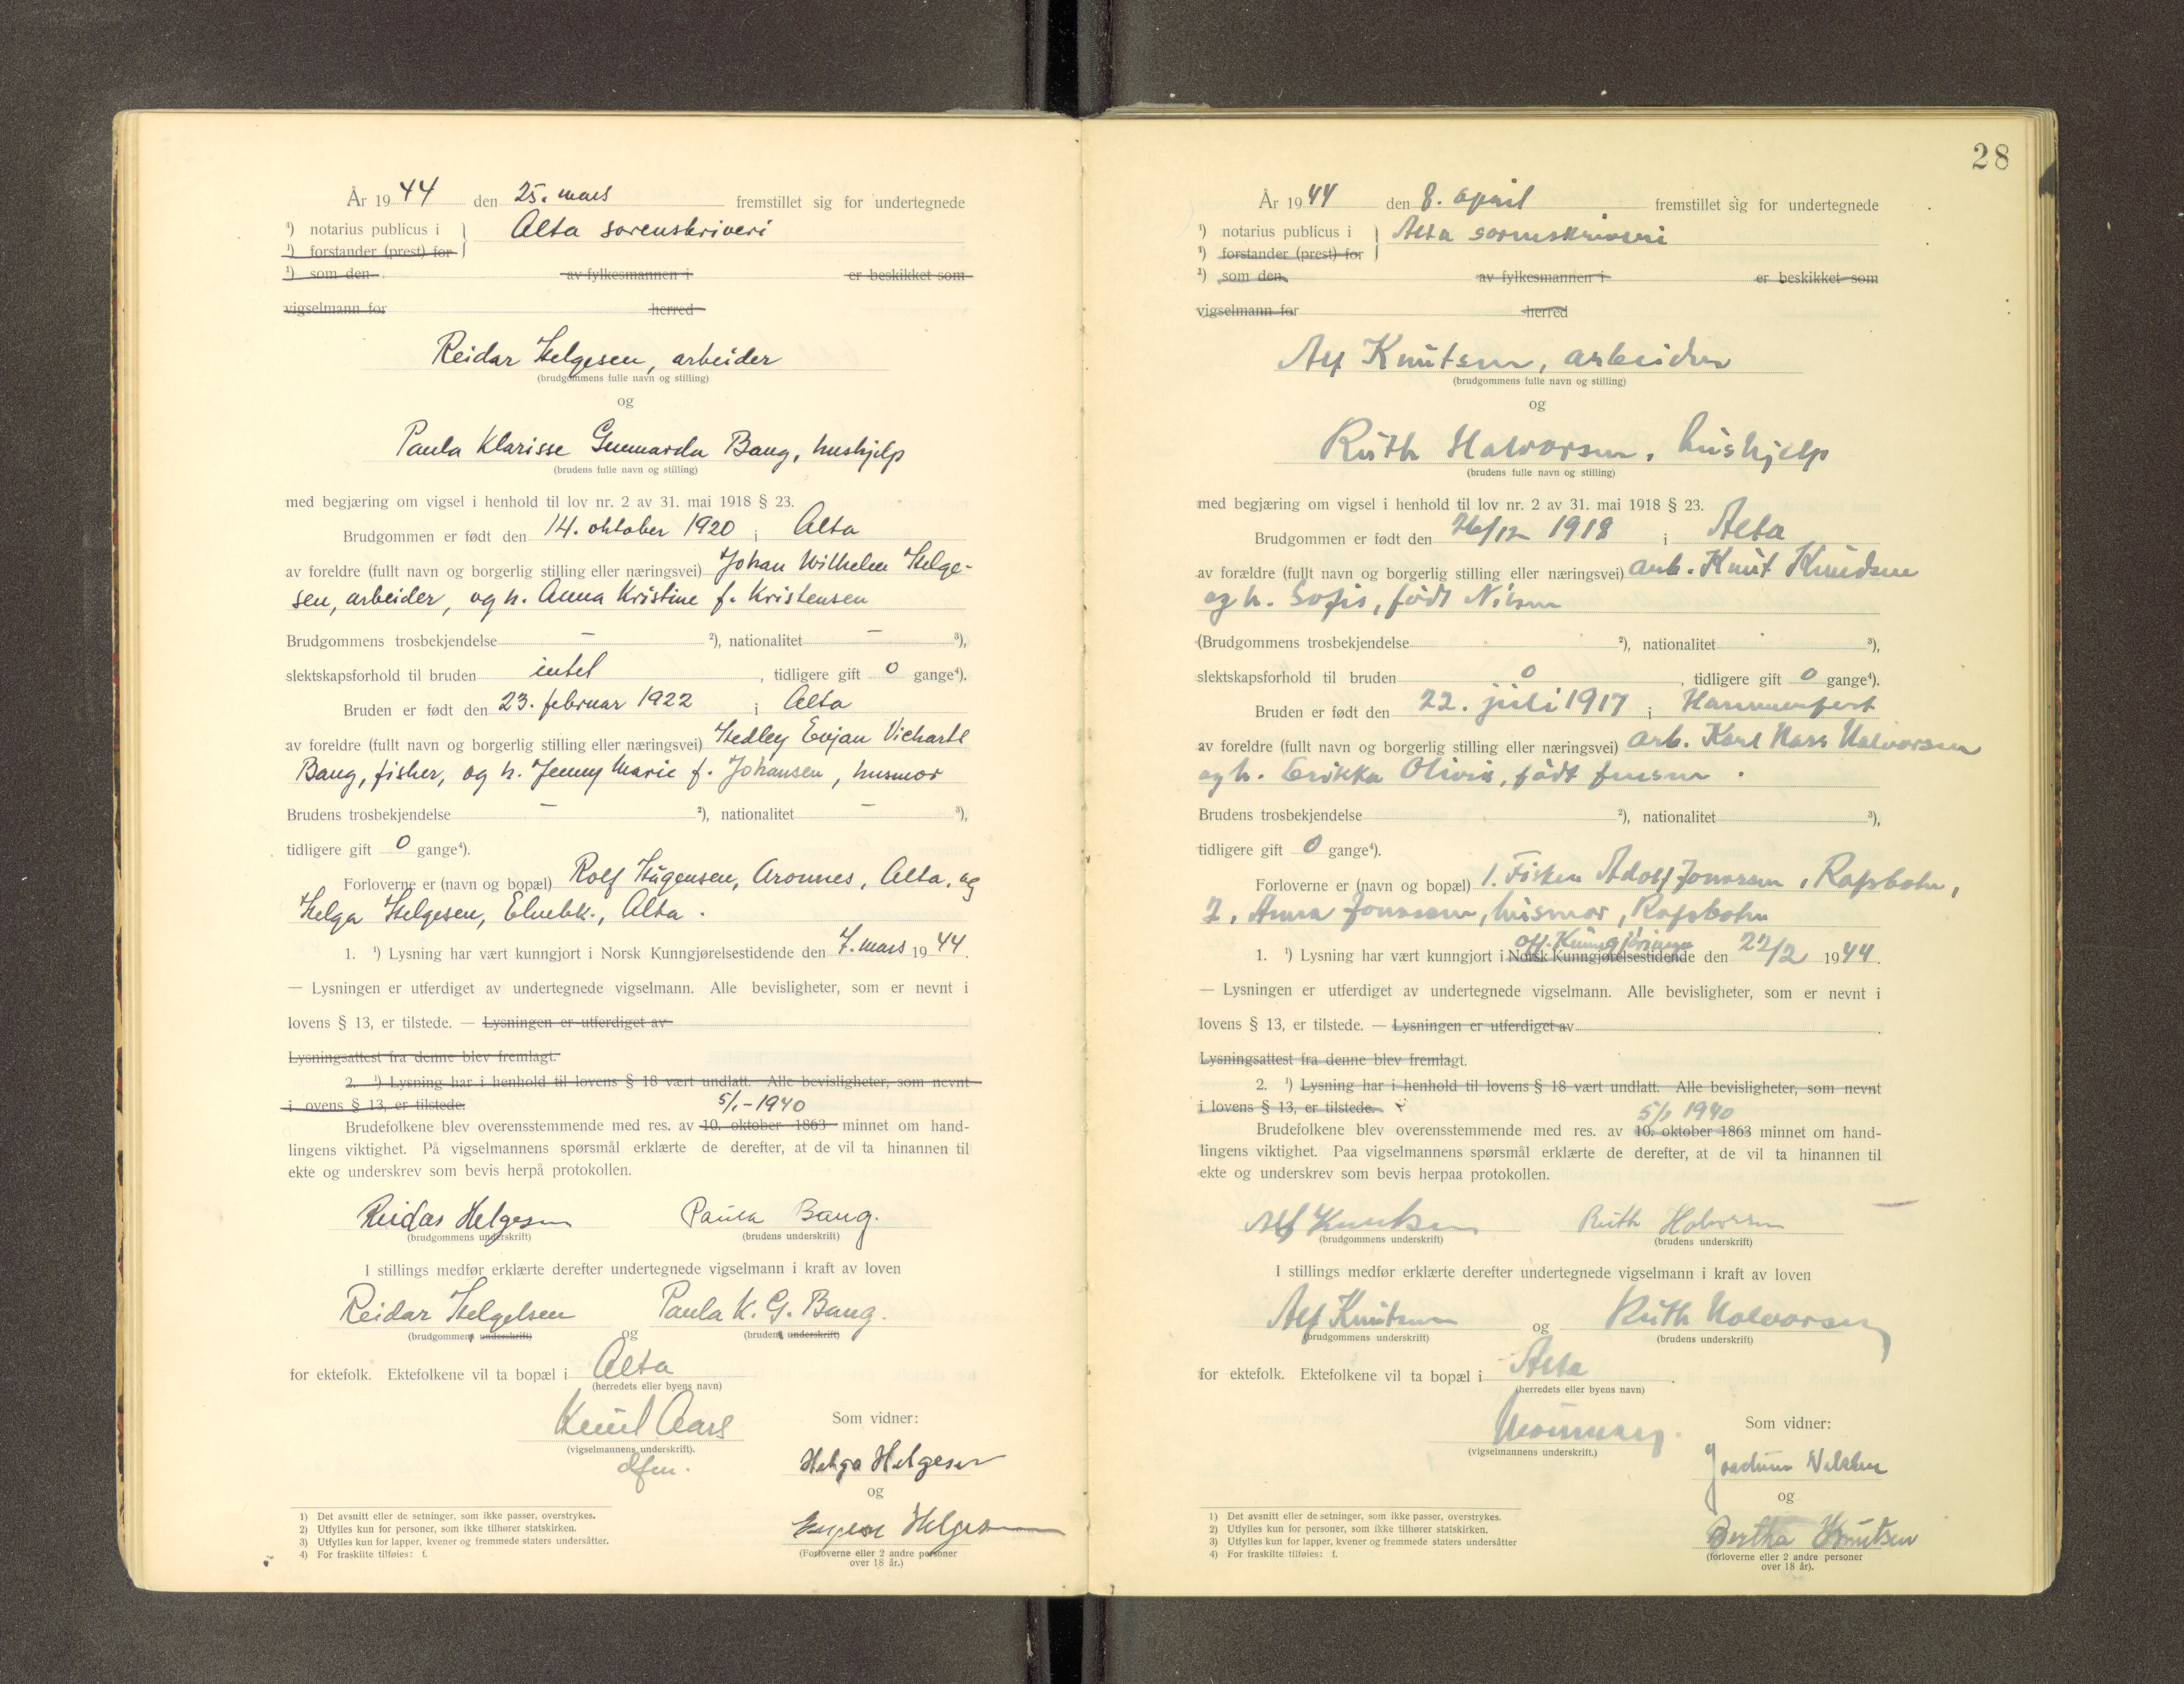 År 1944 den 25. mars fremstillet sig for undertegnede
¹) notarius publicus i } Alta sorenskriveri
¹) forstander (prest) for
¹) som den av fylkesmannen i er beskikket som
vigselmann for herred
Reidar Helgesen, arbeider
(brudgommens fulle navn og stilling)
og
Paula Klarisse Gunnarda Bang, hushjelp
(brudens fulle navn og stilling)
med begjæring om vigsel i henhold til lov nr. 2 av 31. mai 1918 § 23.
Brudgommen er født den 14. oktober 1920 i Alta
av foreldre (fullt navn og borgerlig stilling eller næringsvei) Johan Wilhelm Helge-
sen, arbeider, og h. Anna Kristine f. Kristensen
Brudgommens trosbekjendelse — ²), nationalitet — ³),
slektskapsforhold til bruden intet, tidligere gift 0 gange⁴).
Bruden er født den 23. februar 1922 i Alta
av foreldre (fullt navn og borgerlig stilling eller næringsvei) Hedley Evjan
Bang, fisher, og h. Jenny Marie f. Johansen, husmor
Brudens trosbekjendelse — ²), nationalitet — ³),
tidligere gift 0 gange⁴).
Forloverne er (navn og bopæl) Rolf Aronnes, Alta, og
Helga Helgesen, Elvebk., Alta.
1. ¹) Lysning har vært kunngjort i Norsk Kunngjørelsestidende den 7. mars 1944.
— Lysningen er utferdiget av undertegnede vigselmann. Alle bevisligheter, som er nevnt i
lovens § 13, er tilstede. — Lysningen er utferdiget av
Lysningsattest fra denne blev fremlagt.
2. ¹) Lysning har i henhold til lovens § 18 vært undlatt. Alle bevisligheter, som nevnt
i ovens § 13, er tilstede. 5/1-1940
Brudefolkene blev overensstemmende med res. av 10. oktober 1863 minnet om hand-
lingens viktighet. På vigselmannens spørsmål erklærte de derefter, at de vil ta hinannen til
ekte og underskrev som bevis herpå protokollen.
Reidar Helgesen Paula Bang.
(brudgommens underskrift) (brudens underskrift)
I stillings medfør erklærte derefter undertegnede vigselmann i kraft av loven
Reidar Helgelsen Paula K. G. Bang.
(brudgommens underskrift) og (brudens underskrift)
for ektefolk. Ektefolkene vil ta bopæl i Alta
(herredets eller byens navn)
Knut Aars Som vidner:
(vigselmannens underskrift).
dfm. Helga Helgesen
og
Helgesen
(Forloverne eller 2 andre personer
over 18 år.)
1) Det avsnitt eller de setninger, som ikke passer, overstrykes.
2) Utfylles kun for personer, som ikke tilhører statskirken.
3) Utfylles kun for lapper, kvener og fremmede staters undersåtter.
4) For fraskilte tilføies: f.
28
År 1944 den 8. april fremstillet sig for undertegnede
¹) notarius publicus i } Alta sorenskriveri
¹) forstander (prest) for
¹) som den av fylkesmannen i er beskikket som
vigselmann for herred
Alf Knutsen, arbeider
(brudgommens fulle navn og stilling)
og
Ruth Halvorsen, hushjelp
(brudens fulle navn og stilling)
med begjæring om vigsel i henhold til lov nr. 2 av 31. mai 1918 § 23.
Brudgommen er født den 26/12 1918 i Alta
av forældre (fullt navn og borgerlig stilling eller næringsvei) arb. Knut Knudsen
og h. Sofie, født Nilsen
(Brudgommens trosbekjendelse ²), nationalitet ³),
slektskapsforhold til bruden 0, tidligere gift 0 gange⁴).
Bruden er født den 22. juli 1917 i Hammerfest
av foreldre (fullt navn og borgerlig stilling eller næringsvei) arb. Karl Hass Halvorsen
og h. Erikka Olivie, født Jensen.
Brudens trosbekjendelse ²), nationalitet ³),
tidligere gift 0 gange⁴).
Forloverne er (navn og bopæl) 1. Fisker Adolf Jonassen, Rafsbotn,
2. Anna Jonassen, husmor, Rafsbotn
off. Kunngjøringer
1. ¹) Lysning har vært kunngjort i Norsk Kunngjørelsestidende den 22/2 1944.
— Lysningen er utferdiget av undertegnede vigselmann. Alle bevisligheter, som er nevnt i
lovens § 13, er tilstede. — Lysningen er utferdiget av
Lysningsattest fra denne blev fremlagt.
2. ¹) Lysning har i henhold til lovens § 18 vært undlatt. Alle bevisligheter, som nevnt
i lovens § 13, er tilstede. 5/1 1940
Brudefolkene blev overensstemmende med res. av 10. oktober 1863 minnet om hand-
lingens viktighet. Paa vigselmannens spørsmål erklærte de derefter, at de vil ta hinannen til
ekte og underskrev som bevis herpaa protokollen.
Alf Knutsen Ruth Halvorsen
(brudgommens underskrift) (brudens underskrift)
I stillings medfør erklærte derefter undertegnede vigselmann i kraft av loven
Alf Knutsen og Ruth Halvorsen
(brudgommens underskrift) (brudens underskrift)
for ektefolk. Ektefolkene vil ta bopæl i Alta.
(herredets eller byens navn)
Som vidner:
(vigselmannens underskrift.)
og
Bertha Knutsen
(forloverne eller 2 andre personer
over 18 år).
1) Det avsnitt eller de setninger, som ikke passer, overstrykes.
2) Utfylles kun for personer, som ikke tilhører statskirken.
3) Utfylles kun for lapper, kvener og fremmede staters undersåtter
4) For fraskilte tilføies: f.